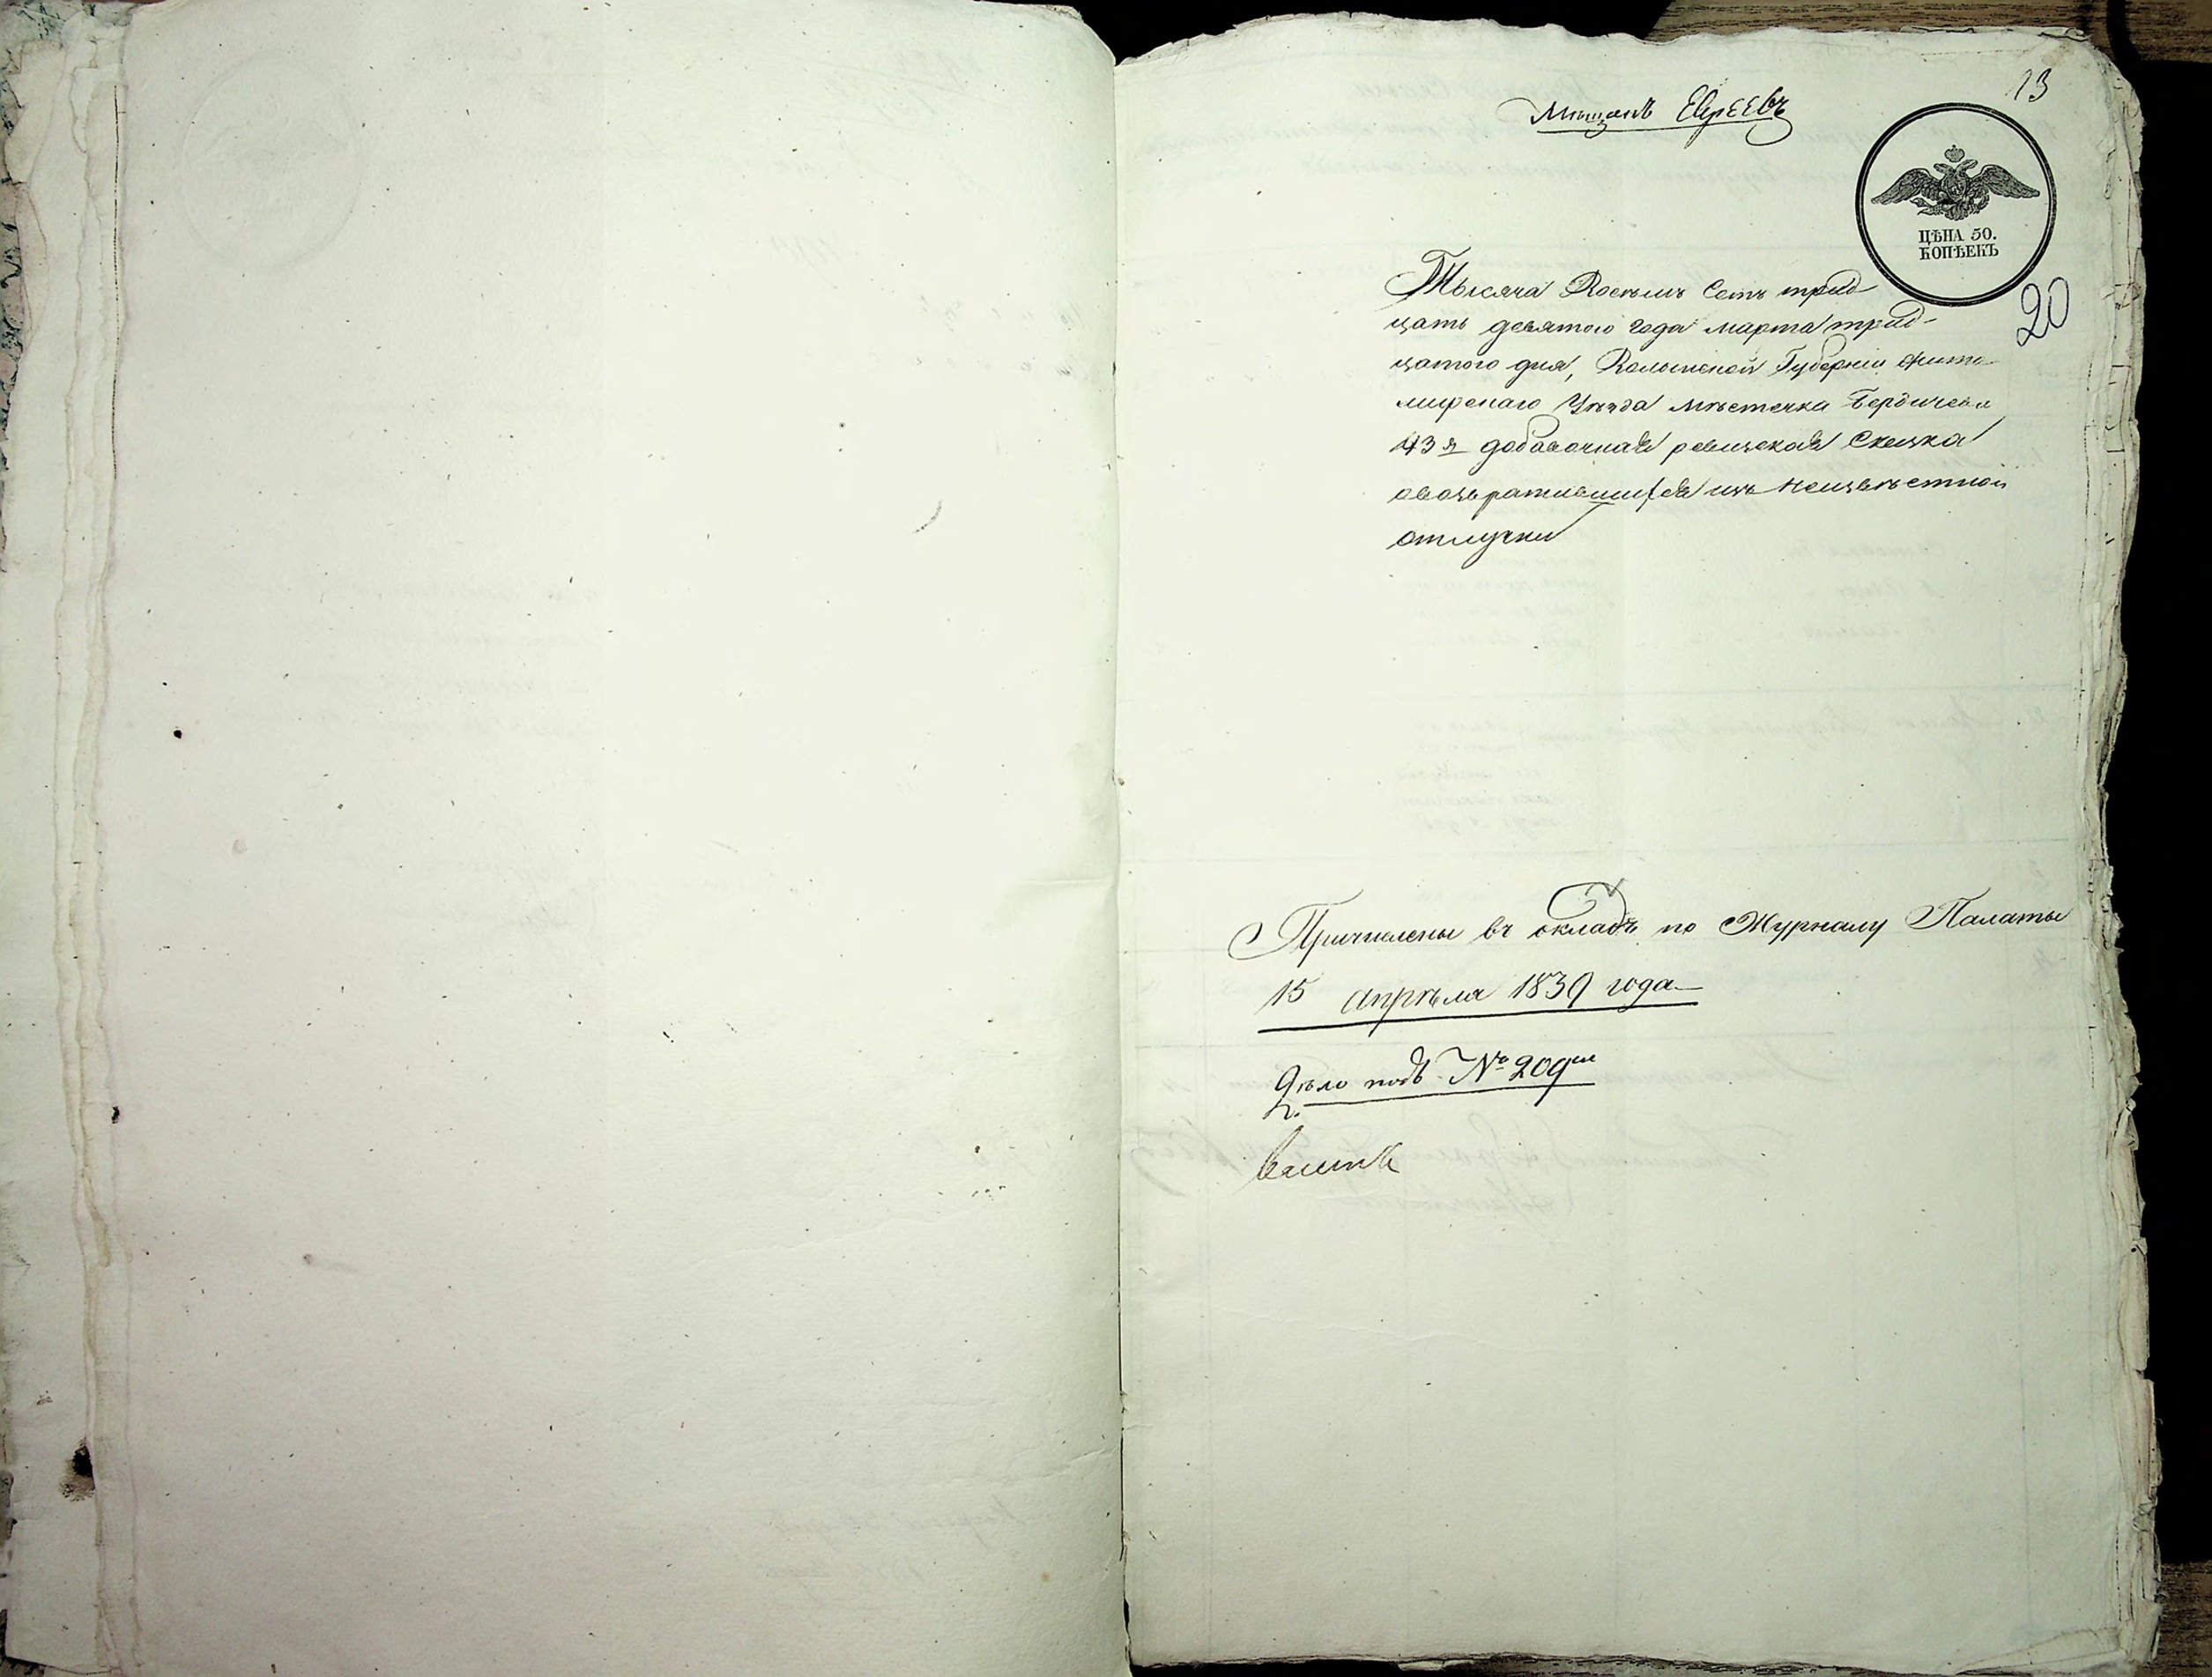 13
Мѣщанъ Евреевъ
ЦѢНА 50.
КОПѢЕКЪ
20
Тысяча Восемь Сотъ трид
цать девятого года марта трид-
цатого дня, Волынской Губерніи Жито
мирскаго Уѣзда мѣстечка Бердичева
43я добавочная ревизская Сказка
овозвратившихся изъ неизвѣстной
отлучки
Причислены въ окладъ по Журналу Палаты
15 Апрѣля 1839 года
Дѣло подъ №